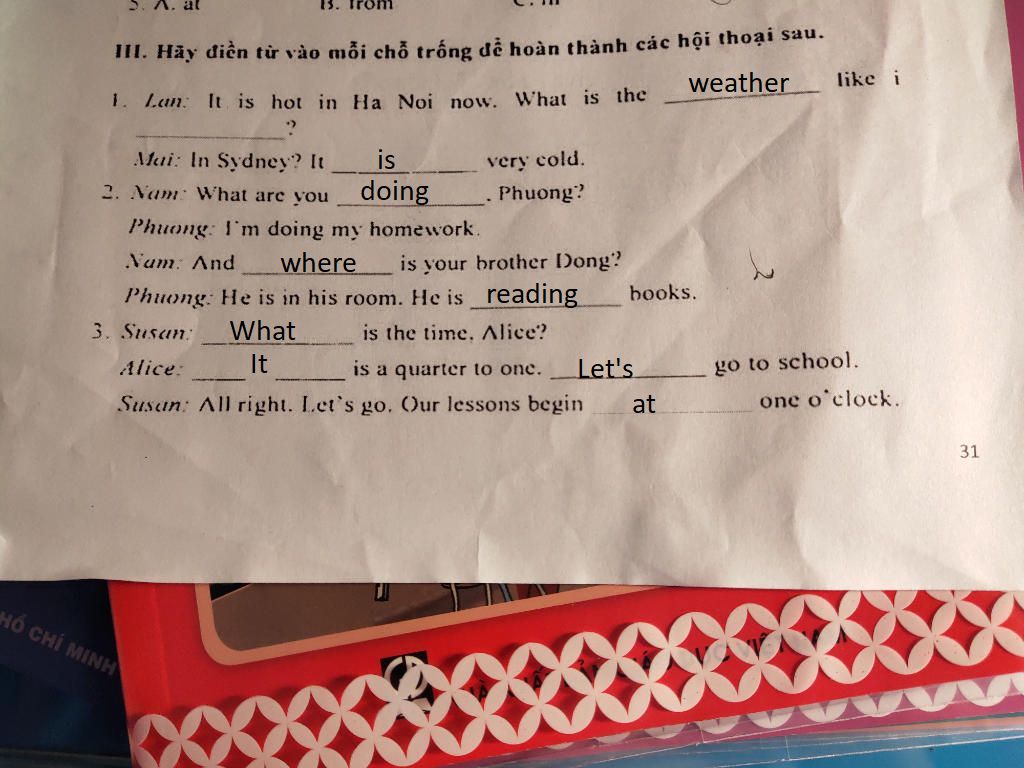 5. A. at B. from C. in
III. Hãy điền từ vào mỗi chỗ trống để hoàn thành các hội thoại sau.
1. Lan: It is hot in Ha Noi now. What is the weather like i
____________?
Mai: In Sydney? It is very cold.
2. Nam: What are you doing, Phuong?
Phuong: I'm doing my homework.
Nam: And where is your brother Dong?
Phuong: He is in his room. He is reading books.
3. Susan: What is the time, Alice?
Alice: It is a quarter to one. Let's go to school.
Susan: All right. Let's go. Our lessons begin at one o'clock.
31
HỒ CHÍ MINH